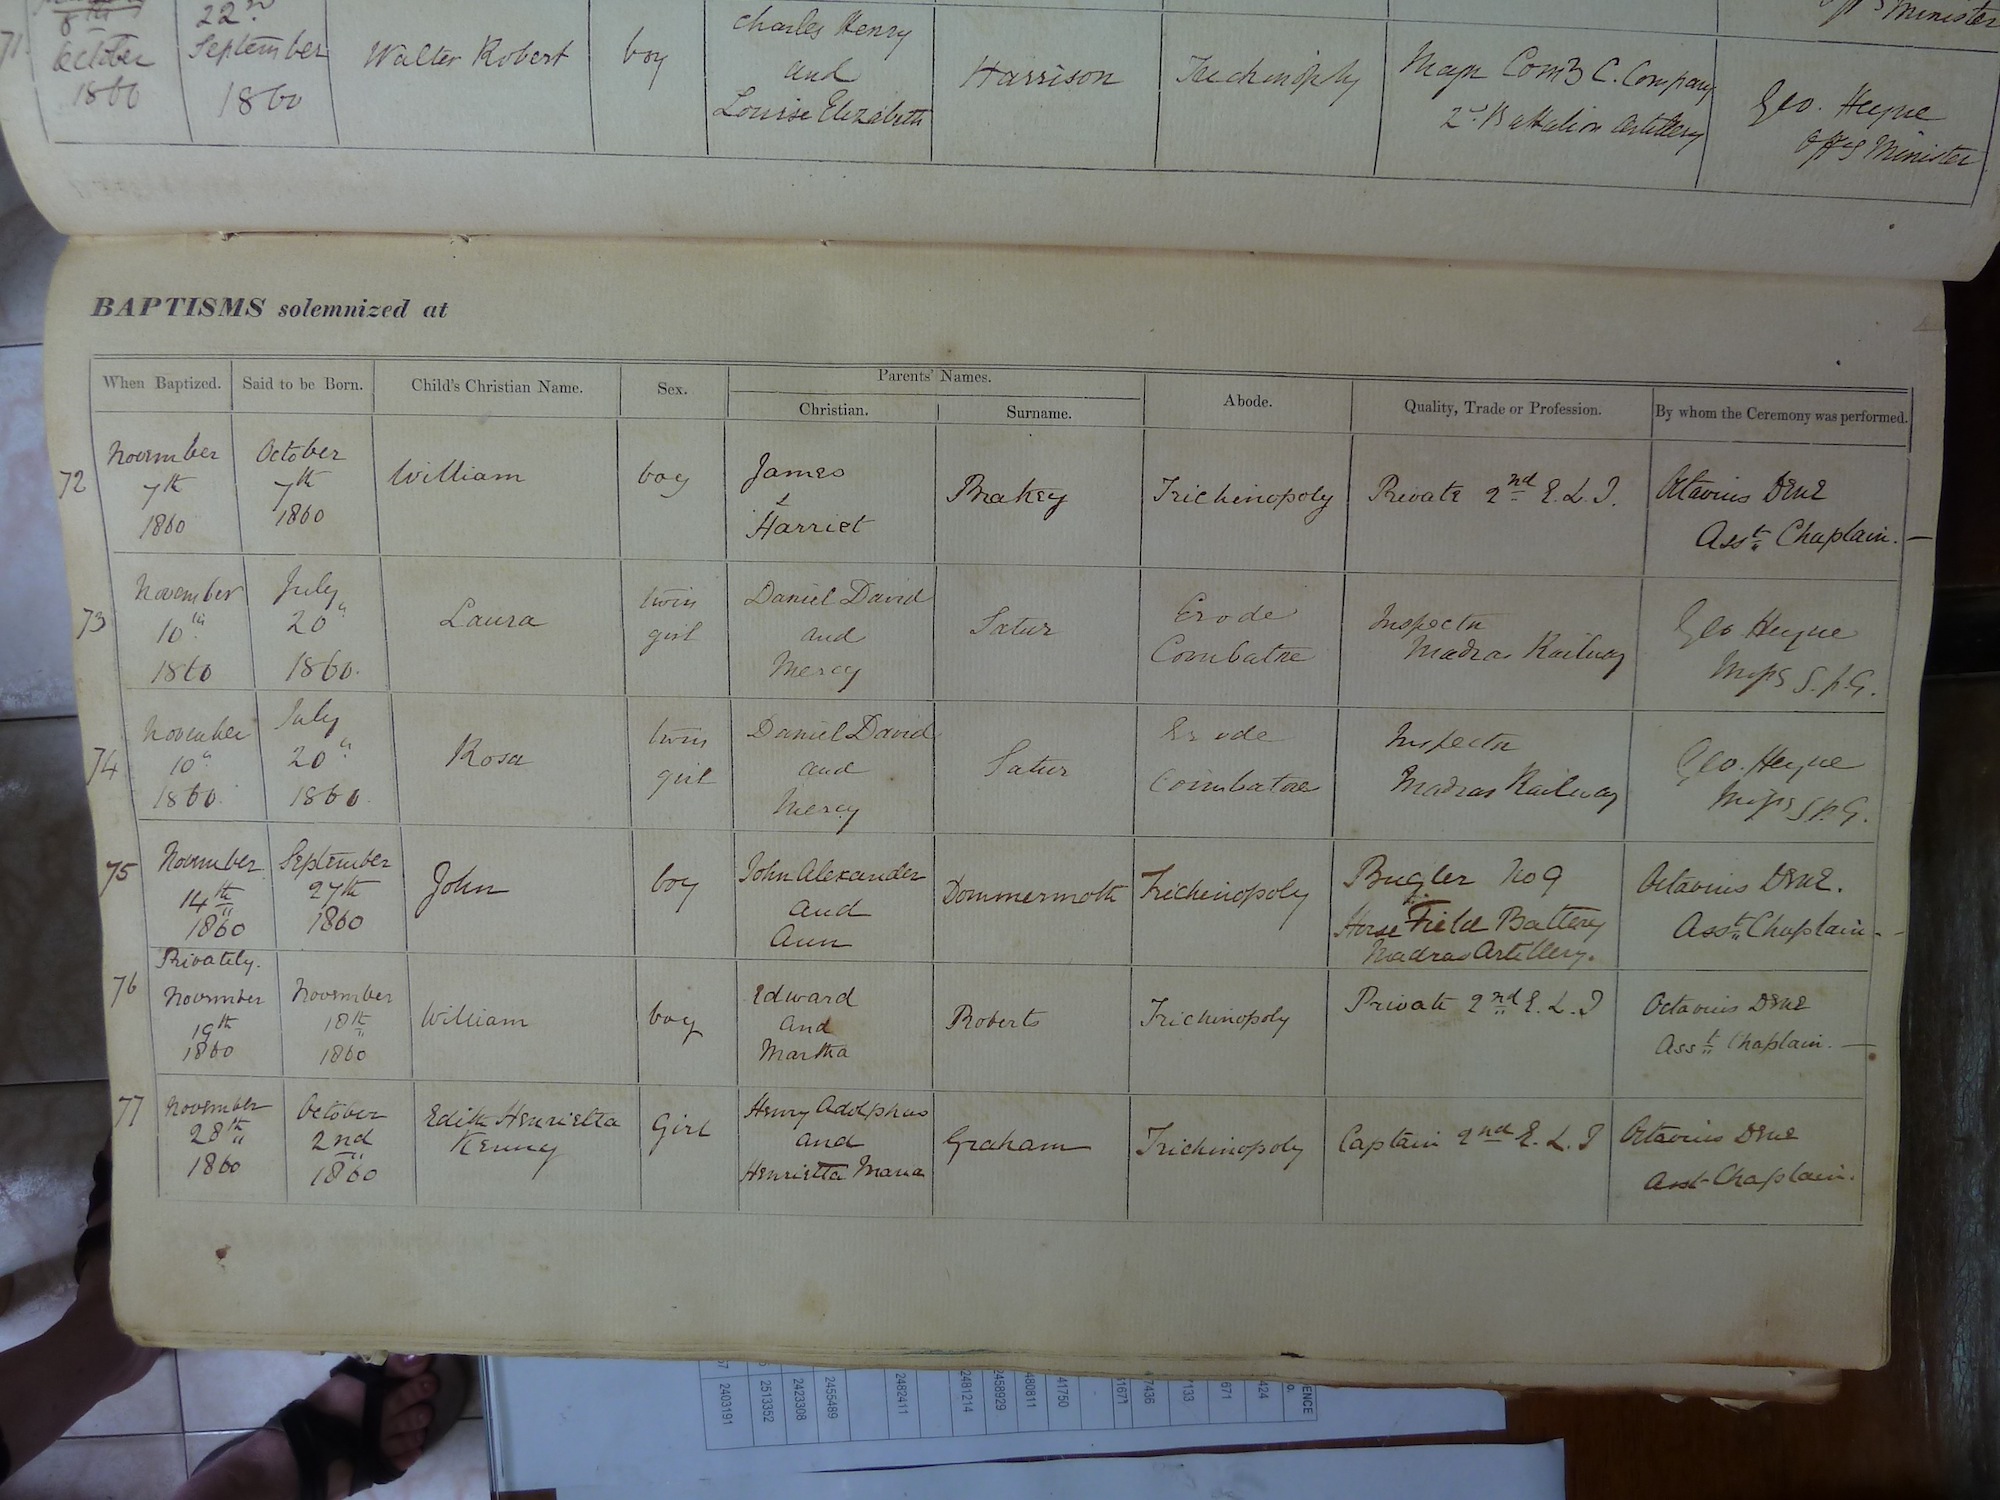 8th
22nd
Minister
71
October
1860
September
1860
Walter Robert
boy
Charles Henry
and
Louisa Elizabeth
Harrison
Trichinopoly
C. Company
2nd Battalion Artillery
Geo. Heyne
Offg Minister
BAPTISMS solemnized at
When Baptized.
Said to be Born.
Child's Christian Name.
Sex.
Parents' Names.
Christian.
Surname.
Abode.
Quality, Trade or Profession.
By whom the Ceremony was performed.
72
November
7th
1860
October
7th
1860
William
boy
James
&
Harriet
Brakey
Trichinopoly
Private 2nd E. L. I.
Octavius Dene
Asst Chaplain.
73
November
10th
1860
July
20"
1860.
Laura
twin
girl
Daniel David
and
Mercy
Satur
Erode
Coimbatore
Inspector
Madras Railway
Geo Heyne
S. P. G.
74
November
10"
1860.
July
20"
1860.
Rosa
twin
girl
Daniel David
and
Mercy
Satur
Erode
Coimbatore
Inspector
Madras Railway
Geo. Heyne
S. P. G.
75
November
14th
1860
September
27th
1860
John
boy
John Alexander
and
Ann
Dommermoth
Trichinopoly
Bugler No 9
Horse Field Battery
Madras Artillery.
Octavius Dene.
Asst Chaplain.
76
Privately.
November
19th
1860
November
18th
1860
William
boy
Edward
and
Martha
Roberts
Trichinopoly
Private 2nd E. L. I
Octavius Dene
Asst Chaplain.
77
November
28th
1860
October
2nd
1860
Edith Henrietta
Kenny
Girl
Henry Adolphus
and
Henrietta Maria
Graham
Trichinopoly
Captain 2nd E. L. I
Octavius Dene
Asst Chaplain.
2403191
2513352
2423308
2455489
2482411
2481214
2458929
480811
41750
1671
7436
7133
671
424
ENCE